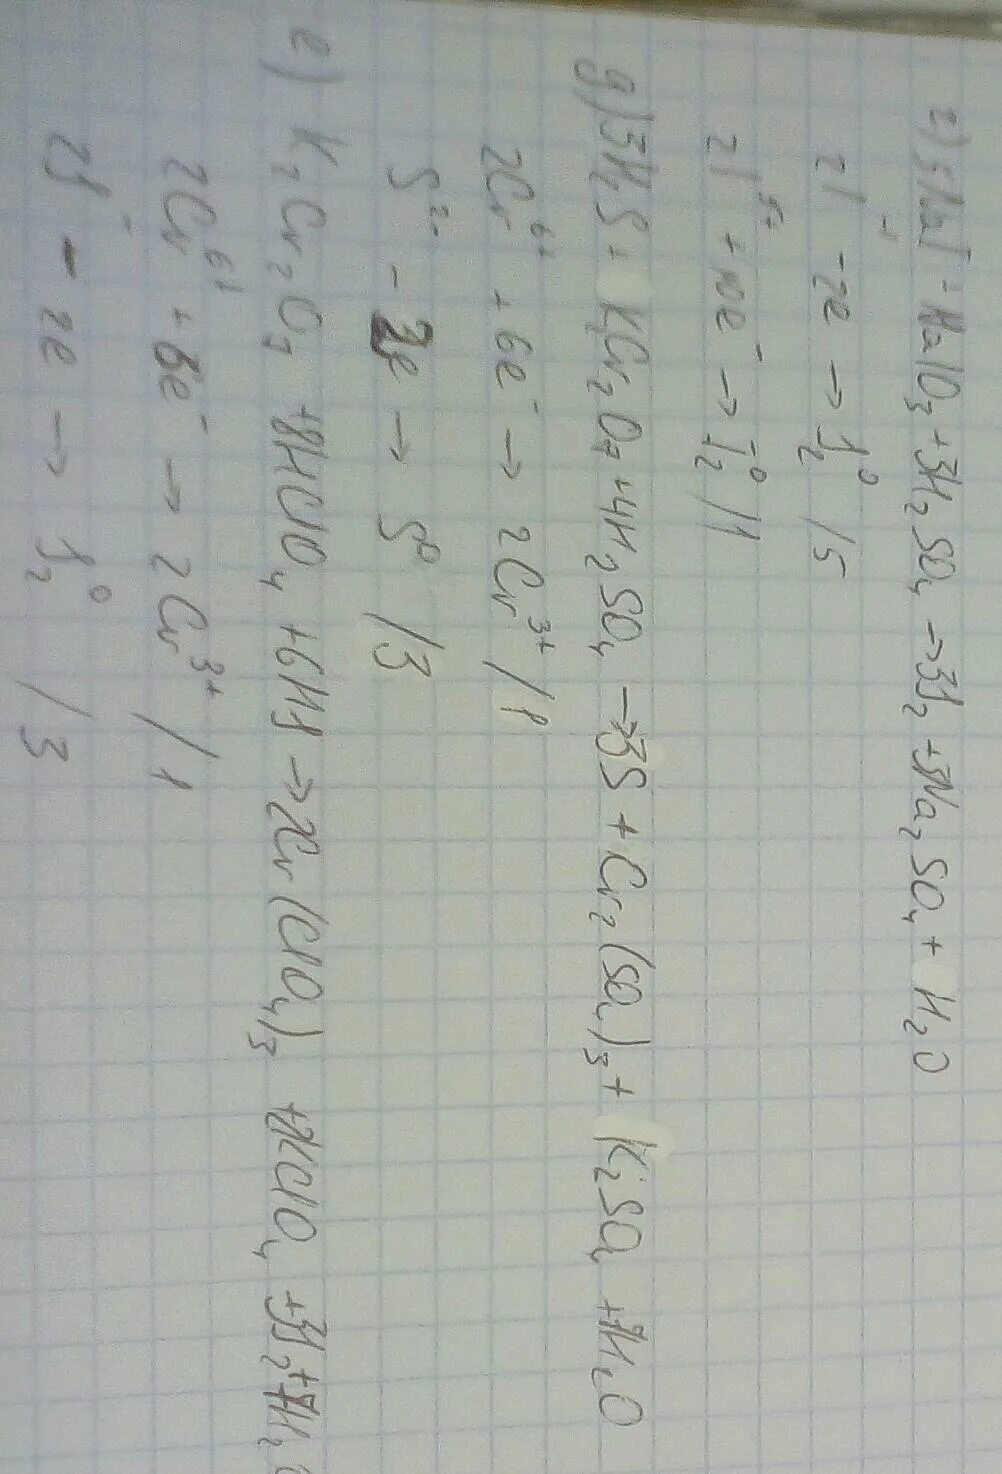 г) 5NaI + NaIO₃ + 3H₂SO₄ → 3J₂ + 3Na₂SO₄ + H₂O
2I⁻ - 2e → J₂⁰ /5
2I⁵⁺ + 10e⁻ → I₂⁰ /1
д) 3H₂S + KCr₂O₇ + 4H₂SO₄ → 3S + Cr₂(SO₄)₃ + K₂SO₄ + 7H₂O
2Cr⁶⁺ + 6e⁻ → 2Cr³⁺ /1
S²⁻ - 2e → S⁰ /3
е) K₂Cr₂O₇ + 8HClO₄ + 6HJ → 2Cr(ClO₄)₃ + 2KClO₄ + 3J₂ + 7H₂O
2Cr⁶⁺ + 6e⁻ → 2Cr³⁺ /1
2J⁻ - 2e → J₂⁰ /3